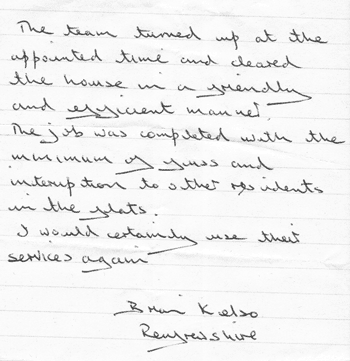 The team turned up at the
appointed time and cleared
the house in a friendly
and efficient manner.
The job was completed with the
minimum of fuss and
interuption to other residents
in the flats.
I would certainly use their
services again
Brian Kelso
Renfrewshire